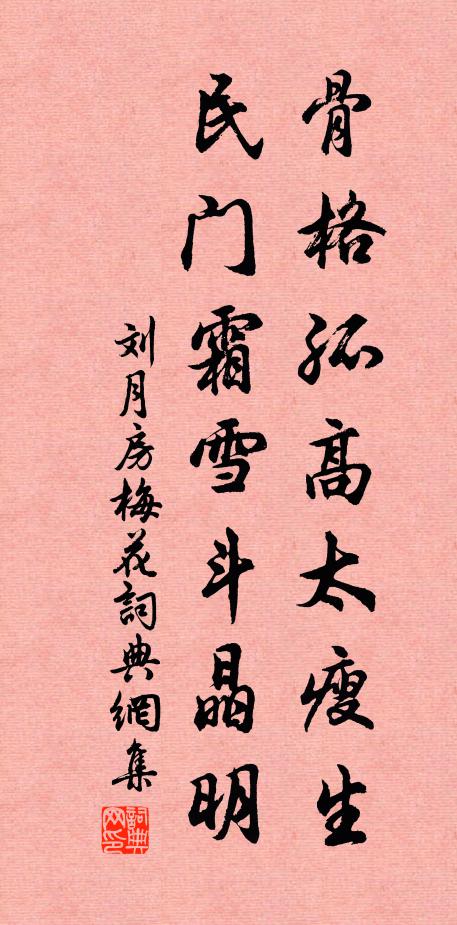 骨格孤高太瘦生
民门霜雪斗晶明
刘月房梅花詞典網集
詞典网印